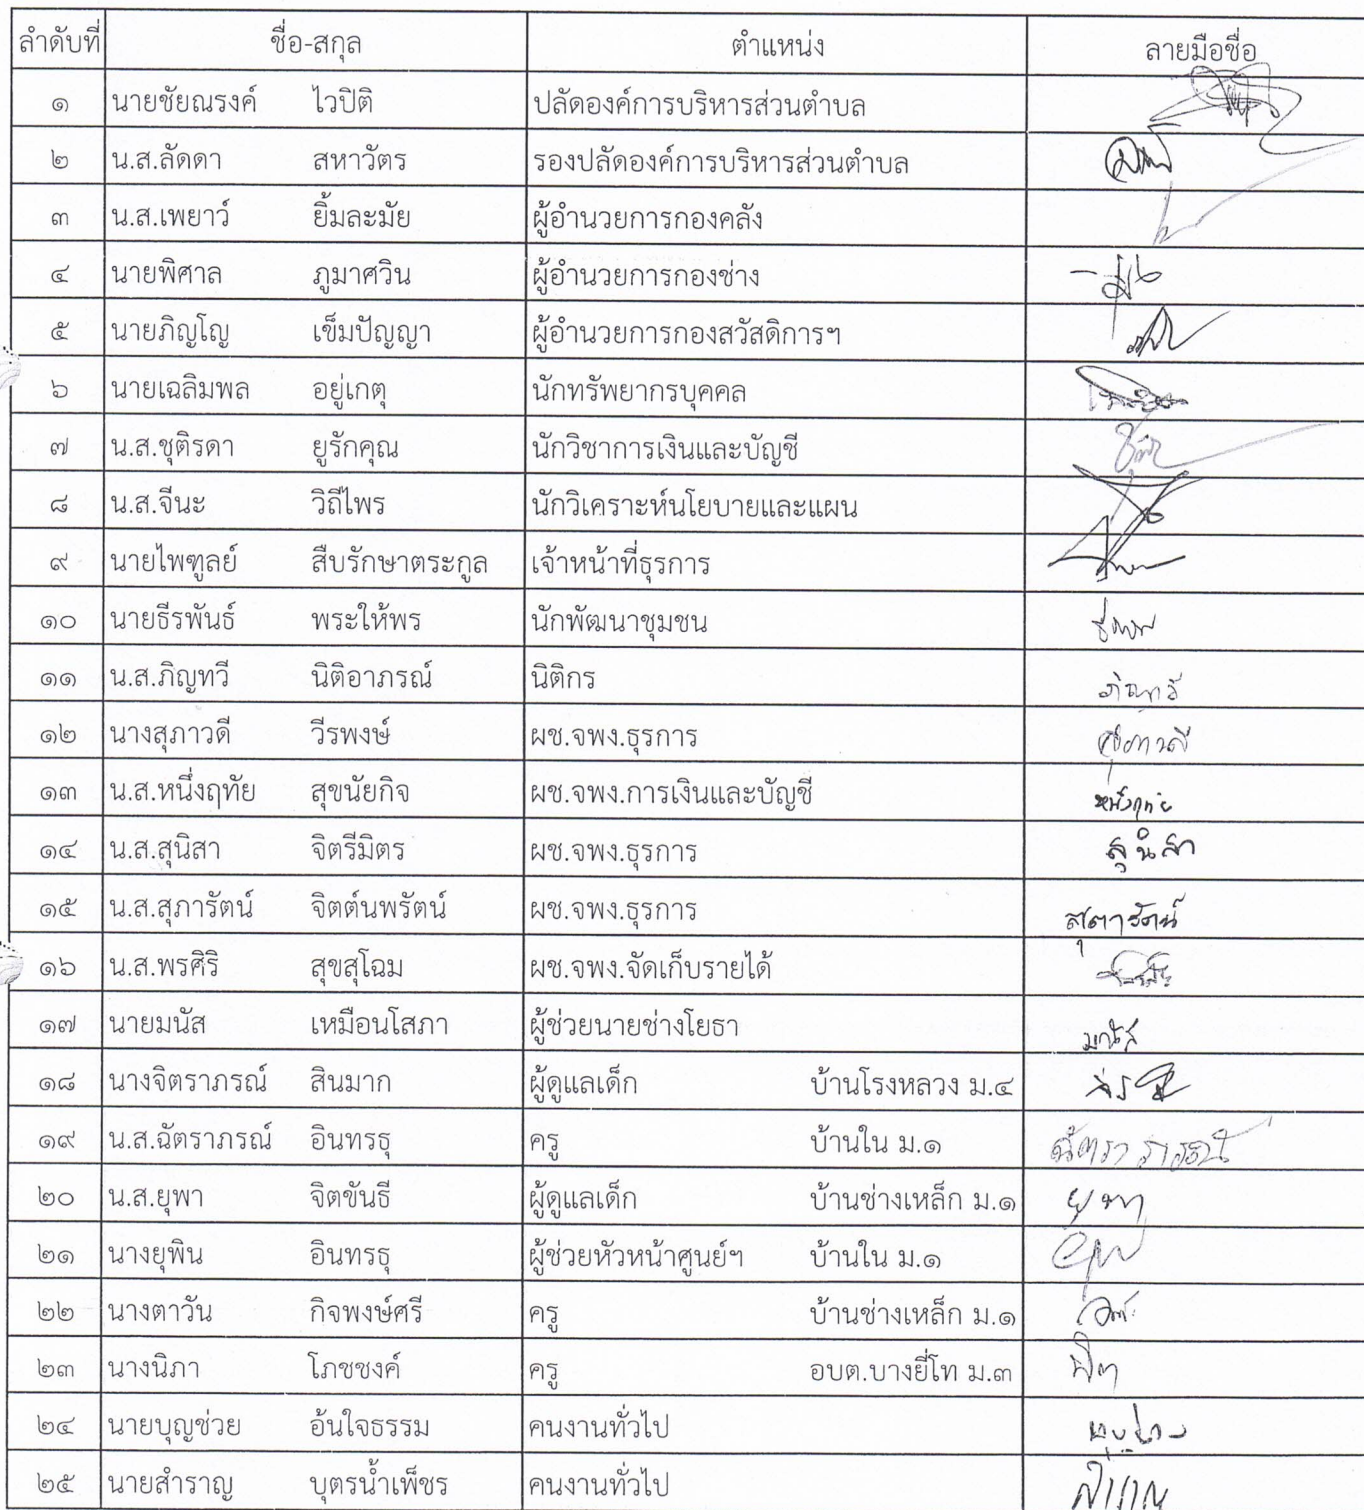 ลำดับที่ ชื่อ-สกุล ตำแหน่ง ลายมือชื่อ
๑ นายชัยณรงค์ ไวปิติ ปลัดองค์การบริหารส่วนตำบล
๒ น.ส.ลัดดา สหาวัตร รองปลัดองค์การบริหารส่วนตำบล
๓ น.ส.เพยาว์ ยิ้มละมัย ผู้อำนวยการกองคลัง
๔ นายพิศาล ภูมาศวิน ผู้อำนวยการกองช่าง
๕ นายภิญโญ เข็มปัญญา ผู้อำนวยการกองสวัสดิการฯ
๖ นายเฉลิมพล อยู่เกตุ นักทรัพยากรบุคคล
๗ น.ส.ชุติรดา ยูรักคุณ นักวิชาการเงินและบัญชี
๘ น.ส.จีนะ วิถีไพร นักวิเคราะห์นโยบายและแผน
๙ นายไพฑูลย์ สืบรักษาตระกูล เจ้าหน้าที่ธุรการ
๑๐ นายธีรพันธ์ พระให้พร นักพัฒนาชุมชน
๑๑ น.ส.ภิญทวี นิติอาภรณ์ นิติกร
๑๒ นางสุภาวดี วีรพงษ์ ผช.จพง.ธุรการ สุภาวดี
๑๓ น.ส.หนึ่งฤทัย สุขนัยกิจ ผช.จพง.การเงินและบัญชี หนึ่งฤทัย
๑๔ น.ส.สุนิสา จิตรีมิตร ผช.จพง.ธุรการ สุนิสา
๑๕ น.ส.สุภารัตน์ จิตต์นพรัตน์ ผช.จพง.ธุรการ สุภารัตน์
๑๖ น.ส.พรศิริ สุขสุโฉม ผช.จพง.จัดเก็บรายได้
๑๗ นายมนัส เหมือนโสภา ผู้ช่วยนายช่างโยธา มนัส
๑๘ นางจิตราภรณ์ สินมาก ผู้ดูแลเด็ก บ้านโรงหลวง ม.๔
๑๙ น.ส.ฉัตราภรณ์ อินทรธุ ครู บ้านใน ม.๑ ฉัตราภรณ์
๒๐ น.ส.ยุพา จิตขันธี ผู้ดูแลเด็ก บ้านช่างเหล็ก ม.๑ ยุพา
๒๑ นางยุพิน อินทรธุ ผู้ช่วยหัวหน้าศูนย์ฯ บ้านใน ม.๑
๒๒ นางตาวัน กิจพงษ์ศรี ครู บ้านช่างเหล็ก ม.๑
๒๓ นางนิภา โภชชงค์ ครู อบต.บางยี่โท ม.๓
๒๔ นายบุญช่วย อ้นใจธรรม คนงานทั่วไป
๒๕ นายสำราญ บุตรน้ำเพ็ชร คนงานทั่วไป สำราญ